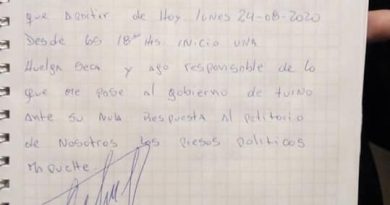 que apartir de Hoy lunes 24-08-2020
Desde las 18:00 Hs inicio una
Huelga Seca y ago responsable de lo
que me pase al gobierno de turno
Ante su nula Respuesta al petitorio
de Nosotros los presos politicos
Mapuche